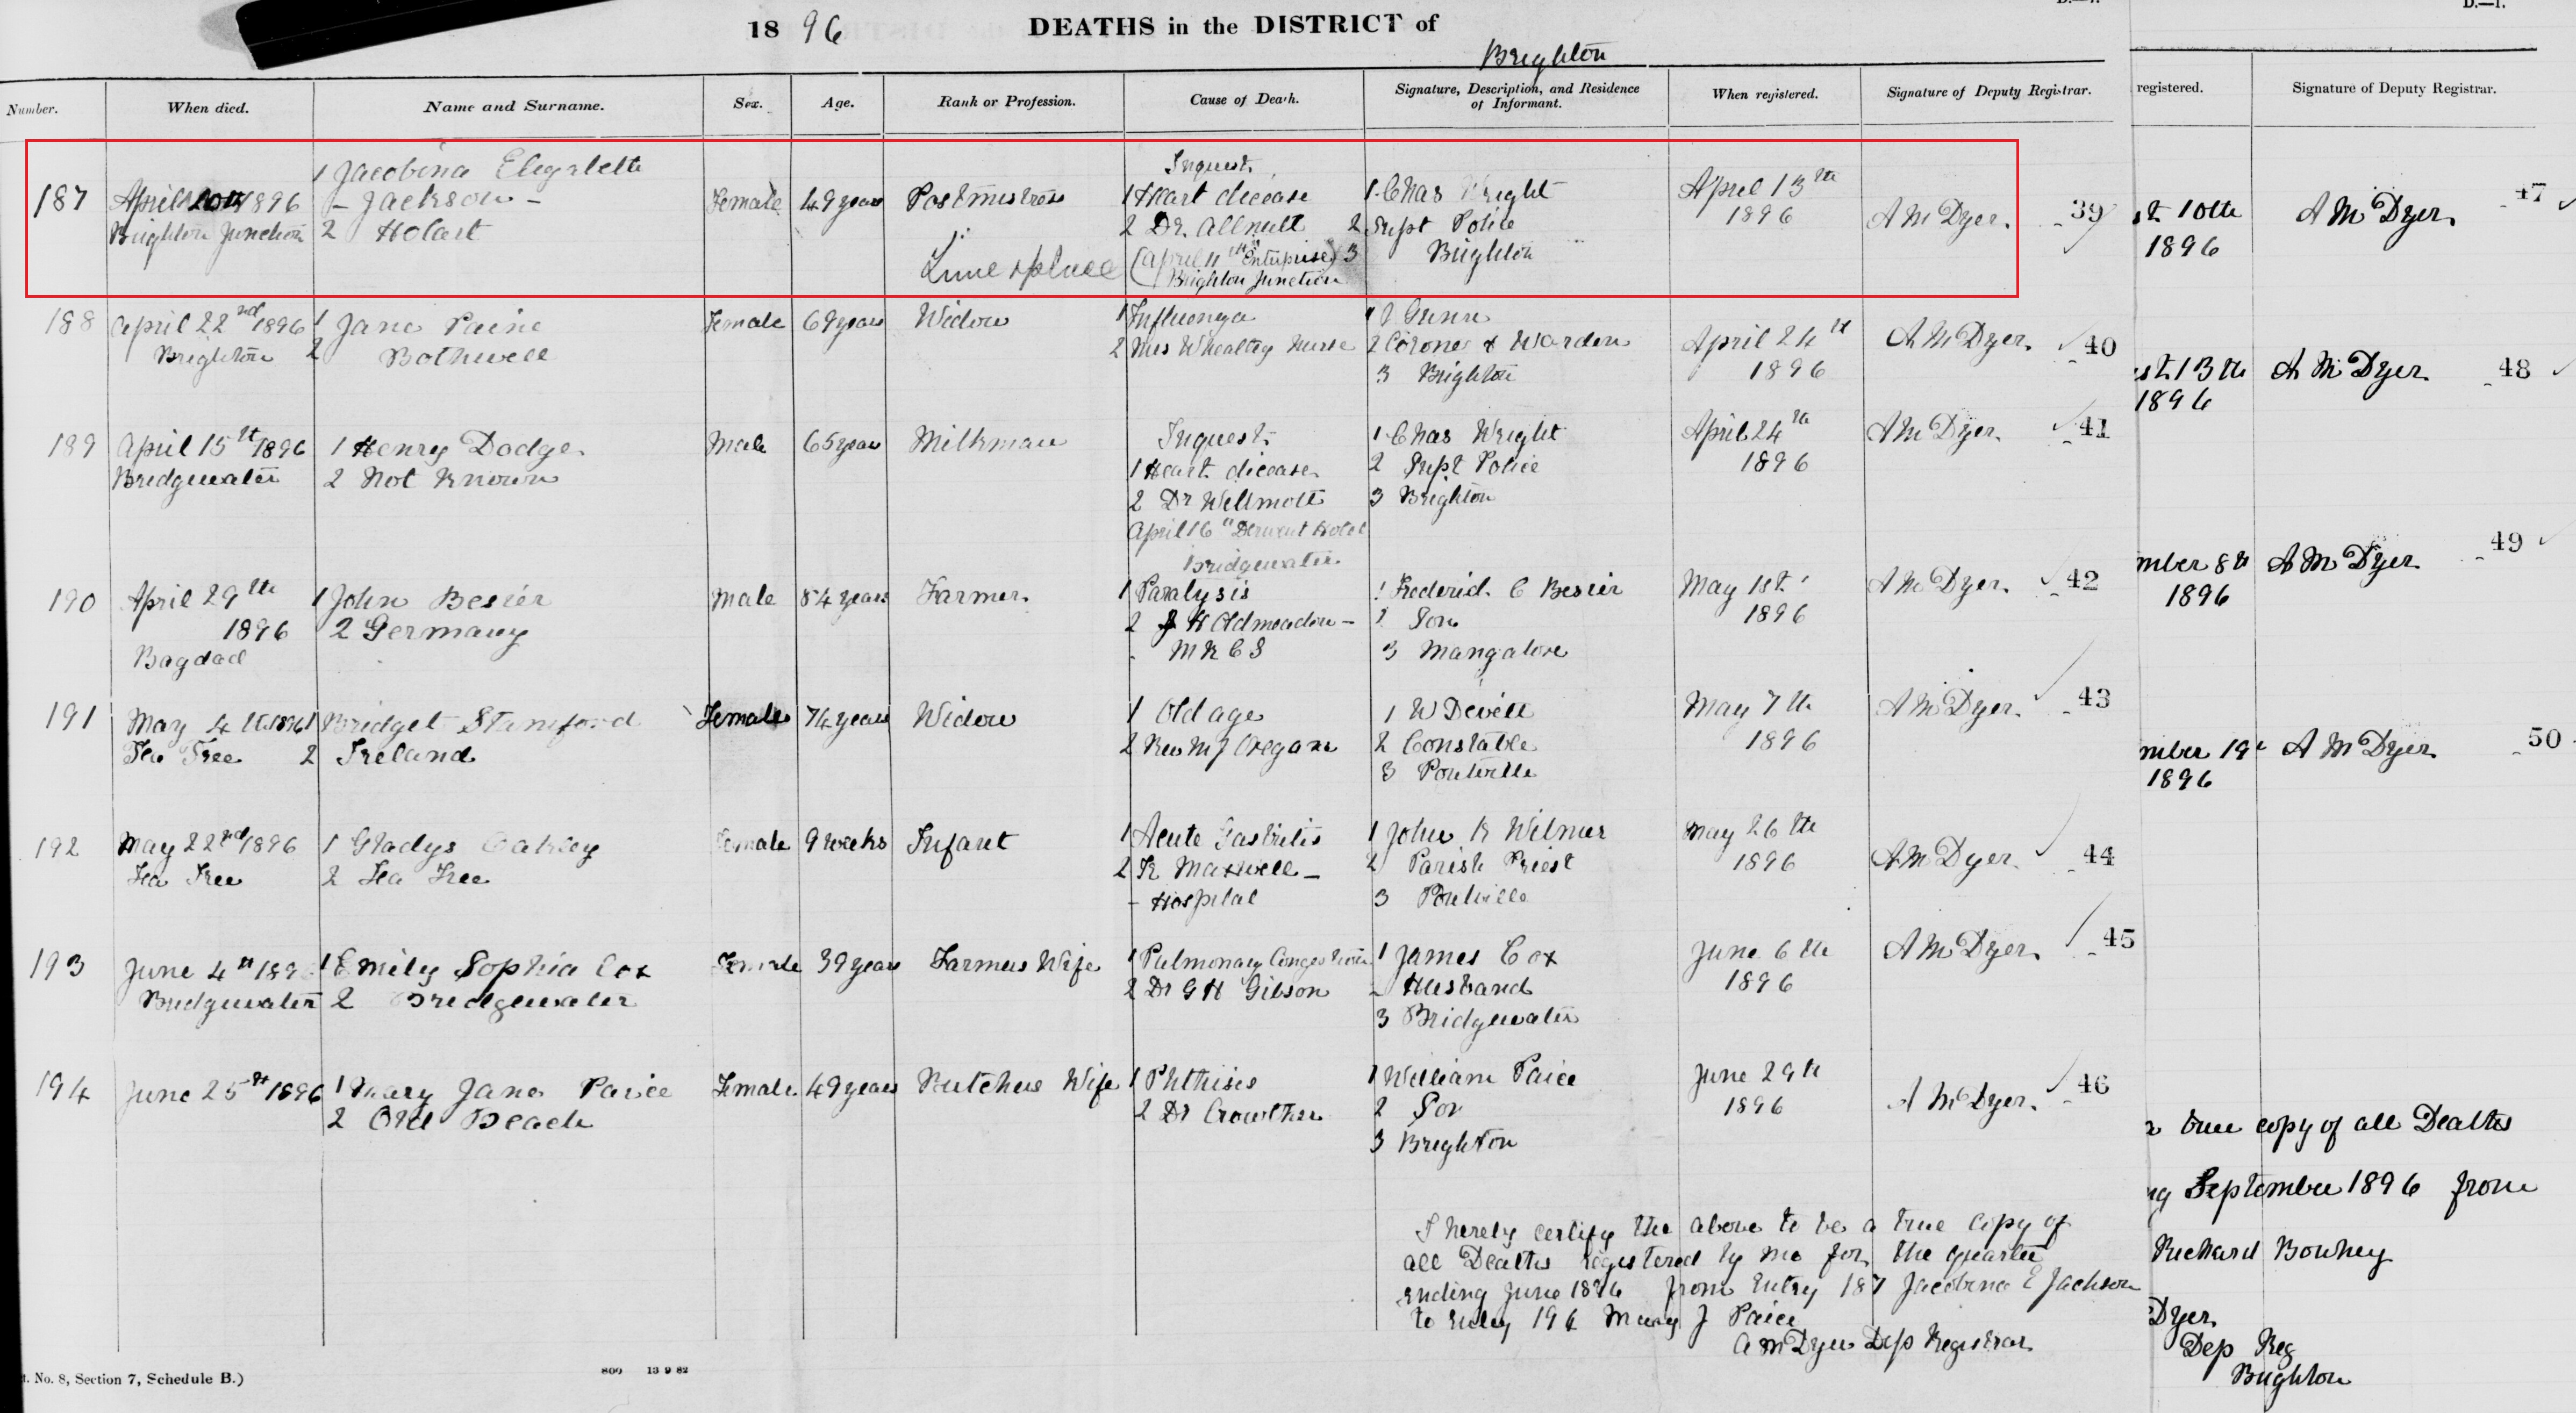 D.—1.
1896 DEATHS in the DISTRICT of
Brighton
Number. When died. Name and Surname. Sex. Age. Rank or Profession. Cause of Death. Signature, Description, and Residence of Informant. When registered. Signature of Deputy Registrar.
registered. Signature of Deputy Registrar.
187 April 1896 Brighton Junction
1 Jacobina Elizabeth
- Jackson -
2 Hobart
Female 49 years Postmistress
Inquest
1 Heart disease
2 Dr. Allnutt
(April 11th Enterprise)
Brighton Junction
1 Chas Wright
2 Supt Police
3 Brighton
April 13th
1896
A M Dyer. 39
188 April 22nd 1896
Brighton
1 Jane Paine
2 Bothwell
Female 69 years Widow
1 Influenza
2 Mrs Whealey Nurse
1 J Gunn
2 Coroner & Warden
3 Brighton
April 24th
1896
A M Dyer. 40
189 April 15th 1896
Bridgewater
1 Henry Dodge.
2 Not Known
Male 65 years Milkman
Inquest.
1 Heart disease.
2 Dr Willmott
April 16th Derwent Hotel
Bridgewater
1 Chas Wright
2 Supt Police
3 Brighton
April 24th
1896
A M Dyer. 41
190 April 29th
1896
Bagdad
1 John Besier
2 Germany
Male 84 years Farmer.
1 Paralysis
2 H Oldmeadow -
M R C S
1 Frederick C Besier
2 Son
3 Mangalore
May 1st
1896
A M Dyer. 42
191 May 4th 1896
Tea Tree
1 Bridget Stanford
2 Ireland
Female 74 years Widow
1 Old age
2 Rev M J Oregan
1 W Devell
2 Constable
3 Pontville
May 7th
1896
A M Dyer. 43
192 May 22nd 1896
Tea Tree
1 Gladys Oakley
2 Tea Tree
Female 9 weeks Infant
1 Acute Gastritis
2 K Maxwell -
- Hospital
1 John K Wilmer
2 Parish Priest
3 Pontville
May 26th
1896
A M Dyer. 44
193 June 4th 189
Bridgewater
1 Emily Sophia Cox
2 Bridgewater
Female 39 years Farmers Wife
1 Pulmonary Congestion
2 Dr G H Gibson
1 James Cox
- Husband
3 Bridgewater
June 6th
1896
A M Dyer. 45
194 June 25th 1896
1 Mary Jane Paice
2 Old Beach
Female 49 years Butchers Wife
1 Phthisis
2 Dr Crowther
1 William Paice
2 Son
3 Brighton
June 29th
1896
A M Dyer. 46
I hereby certify the above to be a true copy of
all Deaths registered by me for the quarter
ending June 1896 from Entry 187 Jacobina E Jackson
to Entry 194 Mary J Paice
A M Dyer Dep Registrar
t. No. 8, Section 7, Schedule B.)
800 13 9 82
st 10th
1896
A M Dyer. 47
st 13th
1896
A M Dyer. 48
mber 8th
1896
A M Dyer 49
mber 19
1896
A M Dyer 50
true copy of all Deaths
ng September 1896 from
Richard Bowhey
Dyer
Dep Reg
Brighton